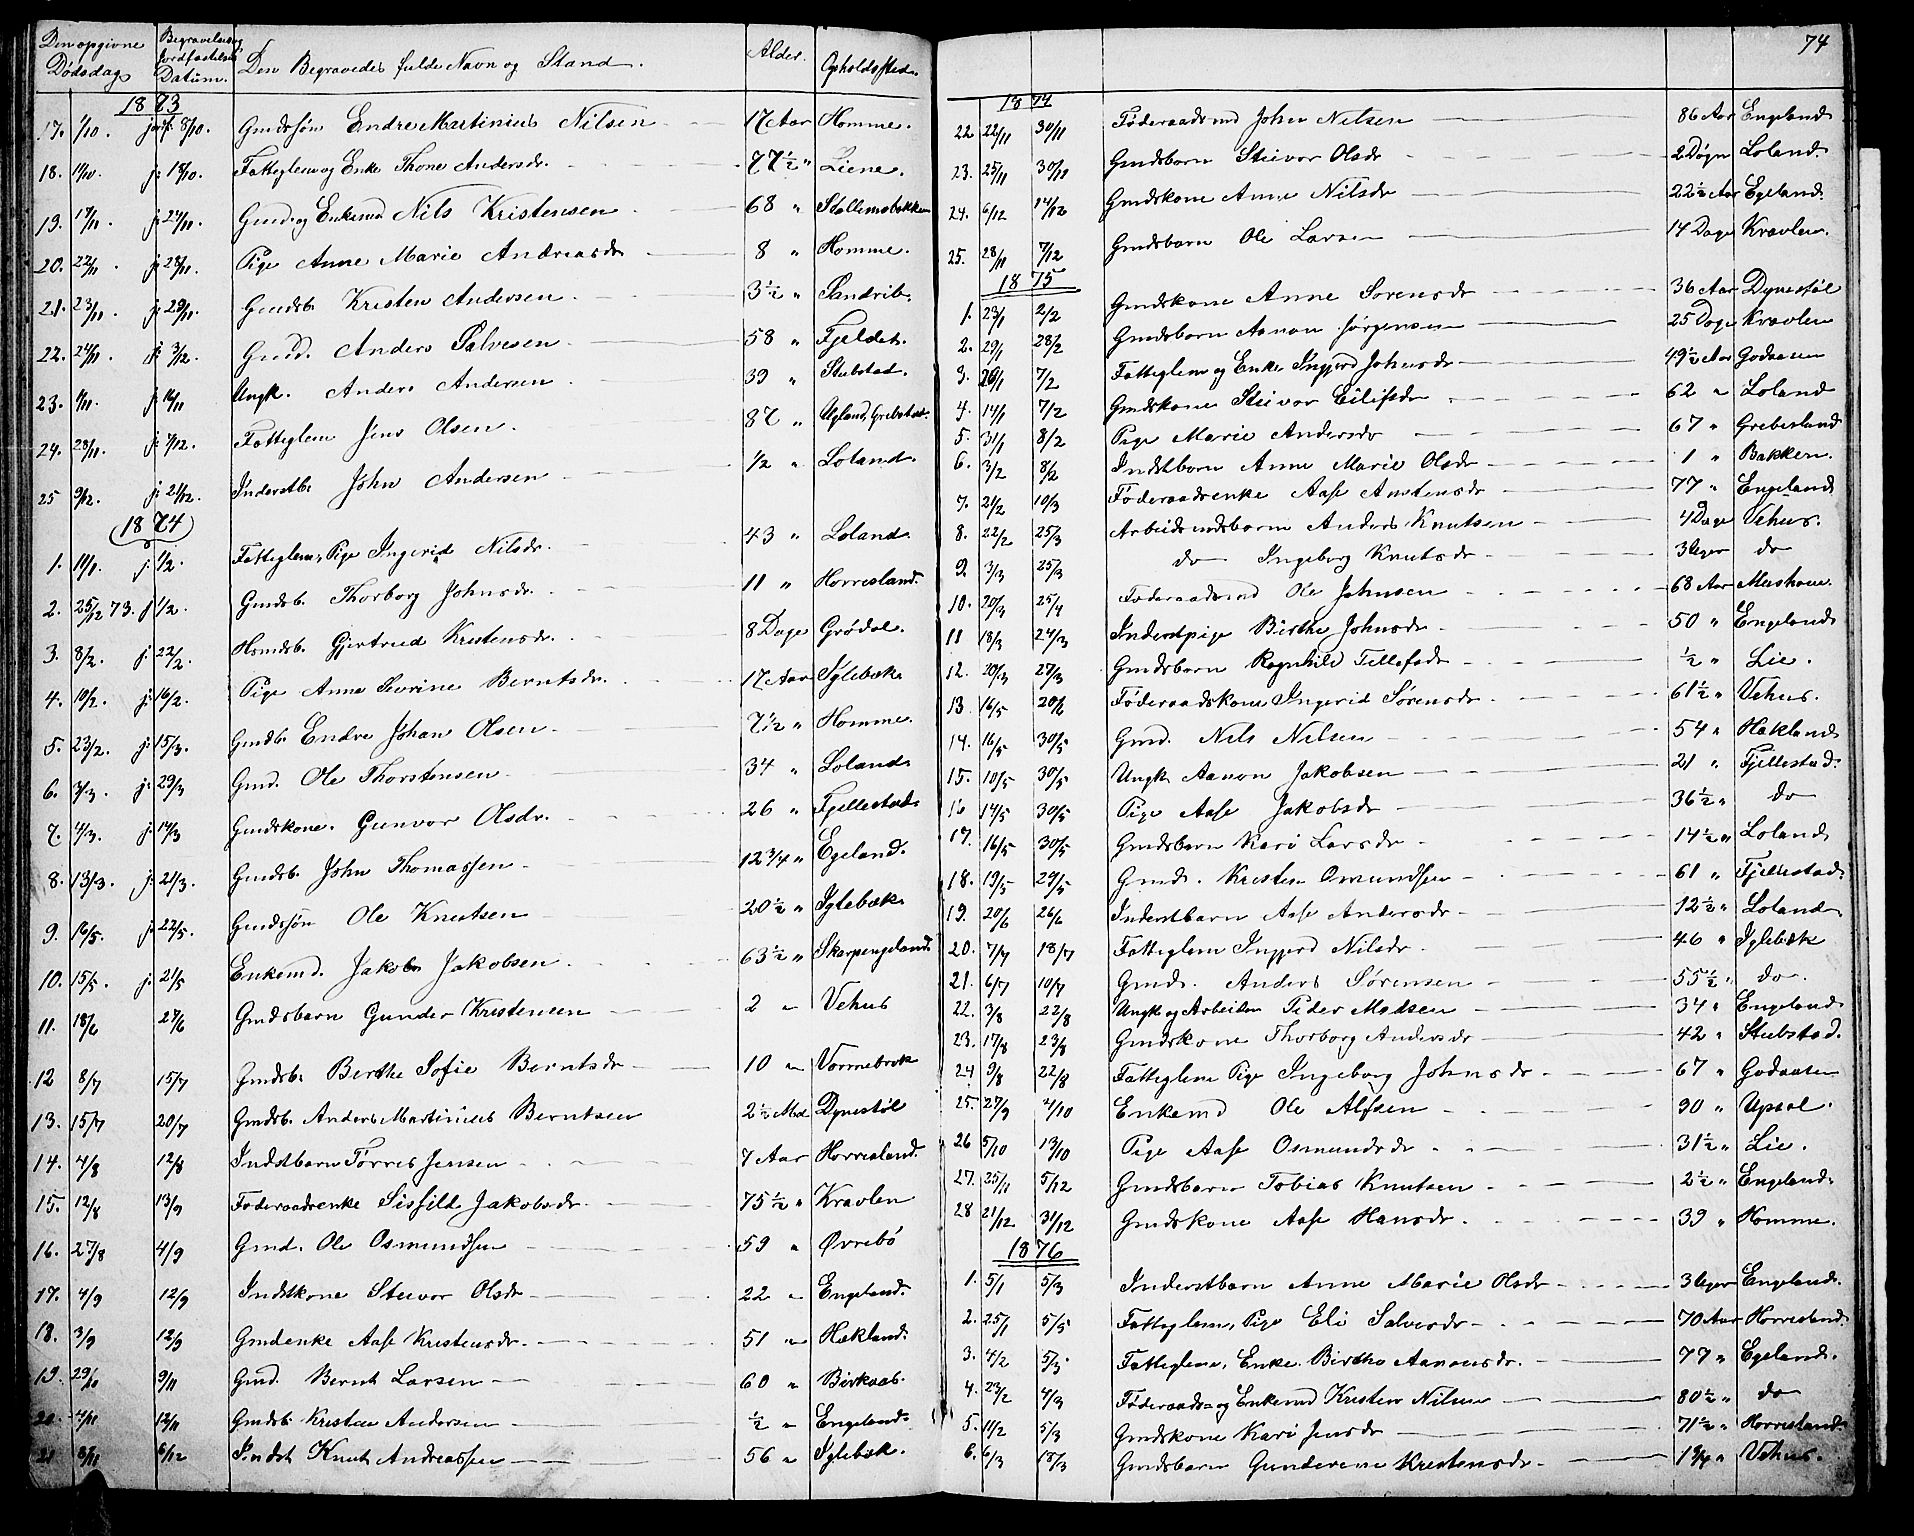 Den opgivne Dødsdag
Begravelses og Jordfæstelses Datum.
Den Begravedes fulde Navn og Stand.
Alder.
Opholdssted.
1873
17. 1/10. 8/10. Gmdssøn Endre Martinius Nilsen 17 Aar Homme.
18. 11/10. j: 18/10. Fatteglem og Enke Thone Andersdr. 77 1/2 " Liene.
19. 17/11. j: 24/11. Gmd. og Enkemd Nils Kristensen 68 " Stallemobakken
20. 22/11. j: 28/11. Pige Anne Marie Andreasdr 8 " Homme.
21. 23/11. j: 29/11. Gmdsb. Kristen Andersen 3 1/2 " Sandrib.
22. 24/11. j: 3/12. Gmd. Anders Salvesen 58 " Fjeldet.
23. j Ungk. Anders Andersen 39 " Stubstad.
24. 28/11. j: 7/12. Fatteglem Jens Olsen. 87 " Ugland, Grebstad.
25 9/12. j: 21/12. Inderstb. John Andersen 1/2 " Loland.
1874
1. 11/1. j. 1/2. Fatteglem, Pige Ingerid Nilsdr. 43 " Loland.
2. 25/12 73. j 1/2. Gmdsb. Thorborg Johnsdr. 11 " Horresland.
3. 8/2. j. 22/2. Hsmdsb. Gjertrud Kristensdr. 8 Dage Grödal.
4. 10/2. j: 16/2. Pige Anne Severine Berntsdr. 17 Aar Iglebæk
5. 23/2. j: 15/3. Gmdsb. Endre Johan Olsen 7 1/2 " Homme.
6. 3/3. j: 29/3 Gmd. Ole Thorstensen 34 " Loland.
7. 4/3. j. 14/3 Gmdskone. Gunvor Olsdr. 26 " Fjellestad.
8. 13/3. j. 21/3. Gmdsb. John Thomassen 12 3/4 " Egeland.
9. 16/5. j: 22/5. Gmdssøn Ole Knutsen 20 1/2 " Iglebæk.
10. 15/5. j. 21/5 Enkemd. Jakob Jakobsen 63 1/2 " Skarpengeland.
11. 18/6 27/6 Gmdsbarn Gunder Kristensen 2 " Vehus
12 8/7 15/7 Gmdsb. Berthe Sofie Berntsdr 10 " Vormebrok
13. 15/7 20/7 Gmdsb. Anders Martinius Berntsen 2 1/2 Md. Dynestöl
14. 4/8 12/8 Indstbarn Torres Jensen 7 Aar Horresland.
15. 12/8 13/9 Föderaadsenke Sisfild Jakobsdr. 75 1/2 " Kravlen
16. 27/8 4/9 Gmd. Ole Osmundsen 59 " Øvrebö
17. 4/9 12/9 Indstkone Steivor Olsdr 22 " Engeland.
18. 3/9 12/9 Gmdenke Aase Kristensdr. 51 " Hækland.
19. 29/10 9/11 Gmd. Bernt Larsen 60 " Birkaas.
20. 4/11 12/11 Gmdsb. Kristen Andersen 1/2 " Engeland.
21 8/11 6/12 Indst. Knut Andreassen 56 " Iglebæk.
74
1874
22 22/11 30/11 Föderaadsmd John Nilsen 86 Aar Engeland
23. 25/11 30/11 Gmdsbarn Steivor Olsdr 2 Døgn Loland.
24. 6/12 14/12 Gmdskone Anne Nilsdr 22 1/2 Aar Egeland.
25. 28/11 7/12 Gmdsbarn Ole Larsen 14 Dage Kravlen.
1875
1. 23/1 2/2 Gmdskone Anne Sörensdr 36 Aar Dynestöl
2. 29/1 28/2 Gmdsbarn Aanon Jörgensen 25 Dage Kravlen
3. 26/1 7/2 Fatteglem og Enke Ingjerd Johnsdr 49 1/2 Aar Godaasen
4. 14/1 7/2 Gmdskone Steivor Eilifsdr 62 " Loland
5. 31/1 8/2 Pige Marie Andersdr 67 " Grebesland
6. 3/2 8/2 Indstbarn Anne Marie Olsdr 1 " Bakken.
7. 21/2 10/3 Föderaadsenke Aase Anstensdr 77 " Engeland
8. 22/2 25/3 Arbeidsmdsbarn Anders Knutsen 4 Dage Vehus.
9. 3/3 25/3 do Ingeborg Knutsdr 3 Uger do
10. 20/3 25/4 Föderaadsmd Ole Johnsen 68 Aar
11 18/3 24/3 Inderstpige Birthe Johnsdr 50 " Engeland
12. 20/3 27/3 Gmdsbarn Ragnhild Tellefsdr 1/2 " Lie.
13. 16/5 20/6 Föderaadskone Ingerid Sörensdr 61 1/2 " Vehus.
14. 16/5 30/5 Gmd. Nils Nilsen 54 " Hækland
15. 10/5 30/5 Ungk. Aanon Jakobsen 21 " Fjellestad.
16 14/5 30/5 Pige Aase Jakobsdr 36 1/2 " do
17. 16/5 30/5 Gmdsbarn Kari Larsdr 14 1/2 " Loland
18. 19/5 29/5 Gmd. Kristen Osmundsen 61 " Fjellestad.
19. 20/6 26/6 Inderstbarn Aase Andersdr 12 1/2 " Loland
20. 7/7 18/7 Fatteglem Ingjerd Nilsdr. 46 " Iglebæk
21. 6/7 10/7 Gmd. Anders Sörensen 55 1/2 " do.
22. 3/8 22/8 Ungk. og Arbeider Peder Madsen 34 " Engeland.
23. 17/8 23/8 Gmdskone Thorborg Andersdr 42 " Stubstad.
24 9/8 22/8 Fatteglem Pige Ingeborg Johnsdr 67 " Godaasen
25. 27/9 4/10 Enkemd Ole Alfsen 90 " Upsal.
26 5/10 13/10 Pige Aase Osmundsdr 31 1/2 " Lie.
27. 25/11 5/12 Gmdsbarn Tobias Knutsen 2 1/2 " Engeland.
28 21/12 31/12 Gmdskone Aase Hansdr. 39 " Homme.
1876
1. 5/1 5/3 Inderstbarn Anne Marie Olsdr 3 Uger Engeland.
2. 25/1 5/5 Fatteglem, Pige Eli Salvesdr 70 Aar Horresland.
3. 4/2 5/3 Fatteglem, Enke. Birthe Aanonsdr. 77 " Egeland.
4. 23/2 4/3 Föderaads- og Enkemd Kristen Nilsen 80 1/2 " do
5. 11/2 5/3 Gmdskone Kari Jensdr 71 1/2 " Horresland.
6. 6/3 18/3 Gmdsbarn Gunderine Kristensdr. 1 3/4 " Vehus.